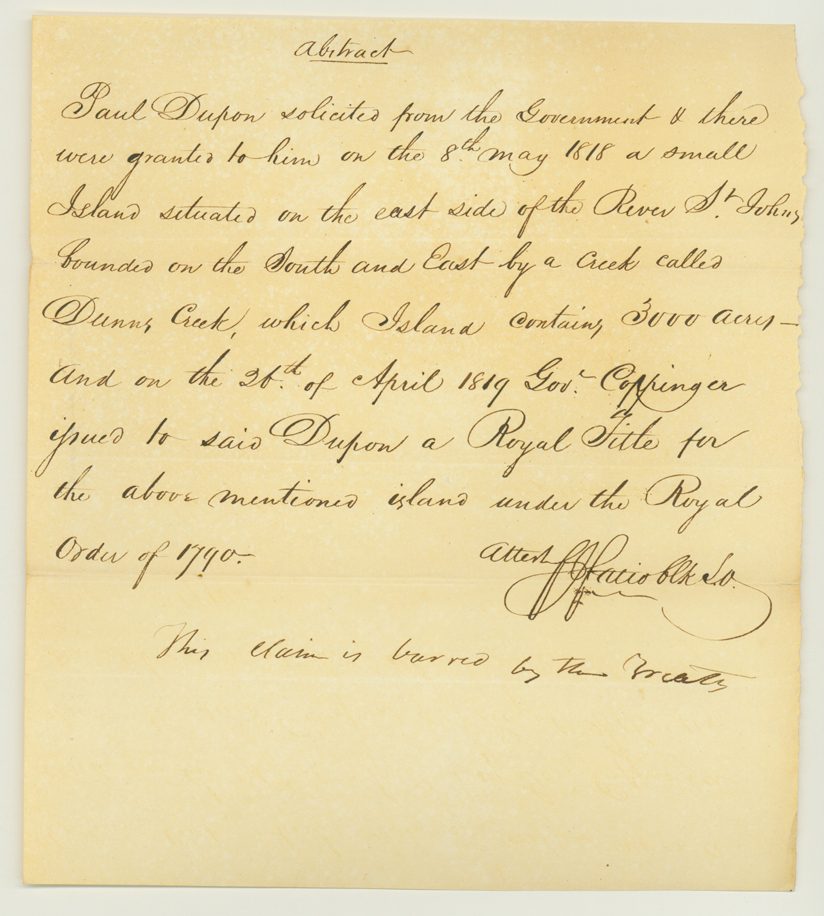 Abstract
Paul Dupon solicited from the Government & there
were granted to him on the 8th. may 1818 a small
Island situated on the east side of the River St. Johns,
bounded on the South and East by a Creek called
Dunns Creek, which Island contains 3000 acres—
And on the 26th. of April 1819 Govr. Coppinger
issued to said Dupon a Royal Title for
the above mentioned island under the Royal
Order of 1790.-
Attest FJ Fatio Clk
This claim is barred by the Treaty